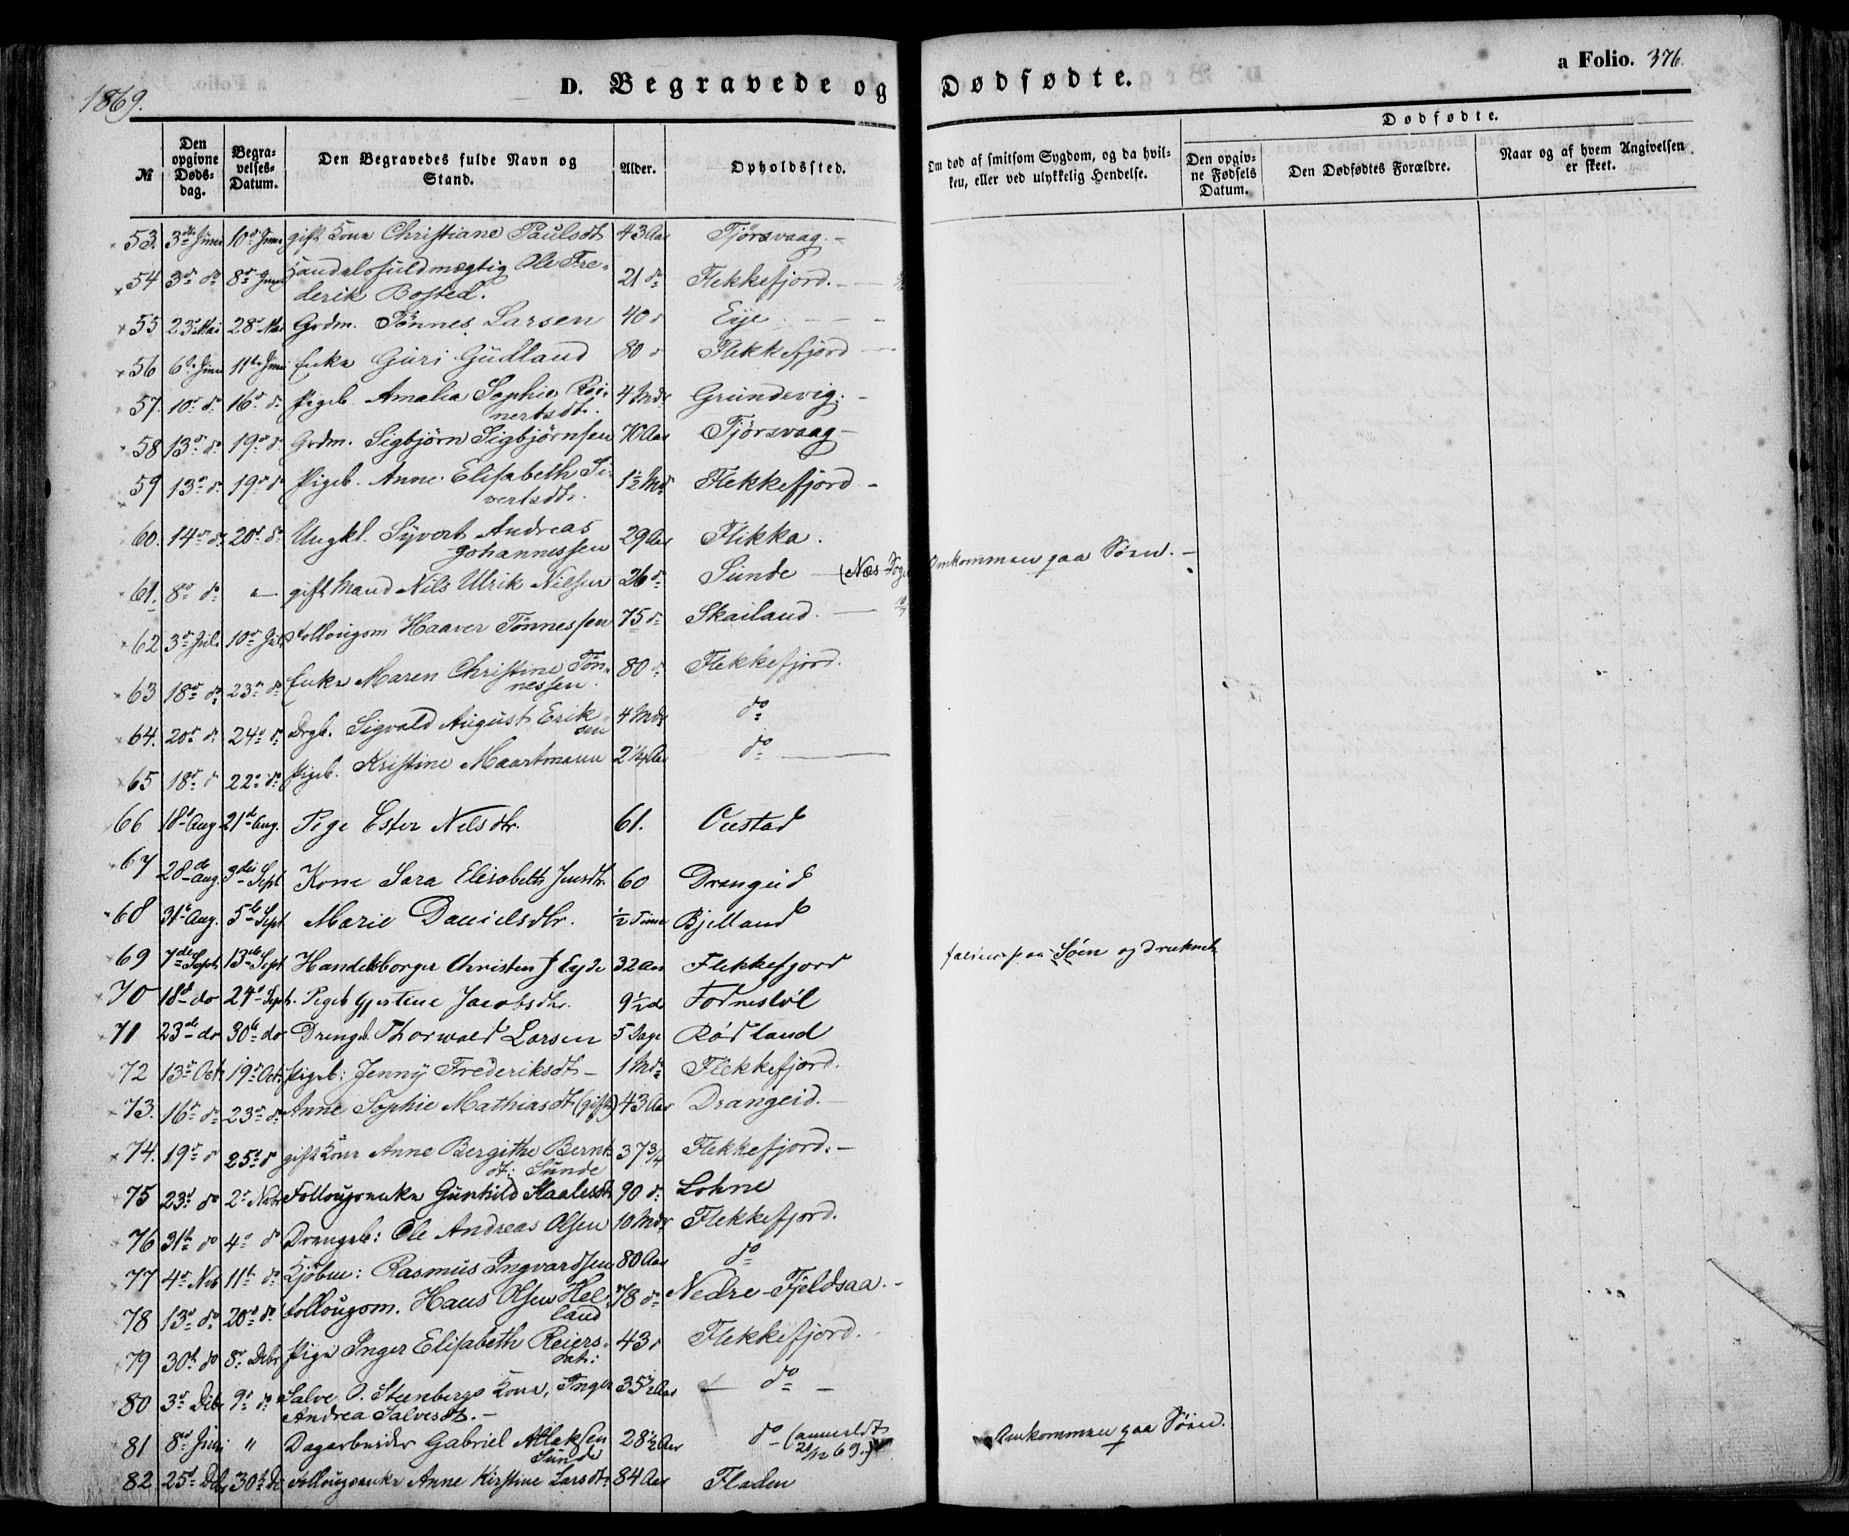 1869.
D. Begravede og Dødfødte.
a Folio. 376.
№ | Den opgivne Dødsdag. | Begravelses-Datum. | Den Begravedes fulde Navn og Stand. | Alder. | Opholdssted. | Om død af smitsom Sygdom, og da hvilken, eller ved ulykkelig Hendelse. | Dødfødte. | Den opgivne Fødsels Datum. | Den Dødfødtes Forældre. | Naar og af hvem Angivelsen er skeet.
53. 3die Juni 10d Juni gift Kone Christiane Paulsdt 43 Aar Tjørsvaag. -
54 3d do 8d Juni Handelsfuldmægtig Ole Fre-
derik Bosted. 21 do Flekkefjord. -
55 23d Mai 28d Mai Grdm. Tönnes Larsen 40 d Eye
56 6te Juni 11te Juni Enke Guri Gudland 80 d Flekkefjord
57. 10d do 16d do Pigeb. Amalia Sophie Rei-
nertsdt. 4 Mdr Grundevig. -
58 13d do 19d do Grdm. Sigbjørn Sigbjørnsen 70 Aar Tjørsvaag -
59 13d do 19d do Pigeb. Anne Elisabeth Si-
vertsdt. 1½ Md Flekkefjord -
60. 14d do 20d do Ungkl. Syvert Andreas
Johannessen 29 Aar Flikka.
61. 8d do " gift Mand Nils Ulrik Nilsen 26 do Sunde (Næs Sogn Omkommen paa Søen. -
62 3d Juli 10d Juli Follougom Haaver Tønnessen 75 do Skailand.
63 18d do 23d do Enke Maren Christine Tøn-
nessen. 80 d Flekkefjord.
64. 20d do 24d do Drgb. Sigvald August Erik-
sen 4 Mdr do
65 18d d 22d do Pigeb. Kristine Maartmann 2½ Aar do
66 18d Aug 21de Aug. Pige Ester Nilsdtr. 61. Oustad
67 28de Aug. 3die Sept Kone Sara Elisabeth Jensdtr 60 Drangeid
68 31te Aug. 5te Sept Marie Danielsdtr. ½ Time Bjelland
69 7de Sept 13de Sept Handelsborger Christen J Eyde 32 Aar Flekkefjord falden paa Søen og druknet
70 18d do 24d Sept. Pigeb Gjertine Jacobsdtr. 9½ do Fornestøl
71 23de do 30te do Drengb Thorwald Larsen 5 Dage Rødland
72 13d Octr 19d Octr Pigeb: Jenny Frederiksdt - 1 Mdr Flekkefjord.
73. 16d do 23d do Anne Sophie Mathiasdt (gift) 43 Aar Drangeid. -
74. 19d d 25d d gift Kone Anne Bergithe Bernt-
dt: Sunde 37¾ Flekkefjord. -
75 23d do 2d Nobr Follougsenke Gunhild Staalesdt 90 d. Lohne
76 31te do 4d do Drengeb: Ole Andreas Olsen 10 Mdr Flekkefjord.
77 4d Nob 11te do Kjøbm: Rasmus Ingvardsen 80 Aar do
78 13d do 20d do Follougom. Hans Olsen Hel-
land 78 do Nedre - Fjeldsaa. -
79 30te do 8d Debr Pige Inger Elisabeth Reiers-
dat: 43 d Flekkefjord.
80 3d Debr 9d do Salve O. Steenbergs Kone, Inger
Andrea Salvesdt. - 35½ Aar do -
81 8d Juni " Dagarbeider Gabriel Atlaksen
Sunde 28½ Aar do (anmeldt
21/12 69.) Omkommen paa Søen.
82 25d Debr 30te De Follougsenke Anne Kirstine Larsdtr 84 Aar Fladen